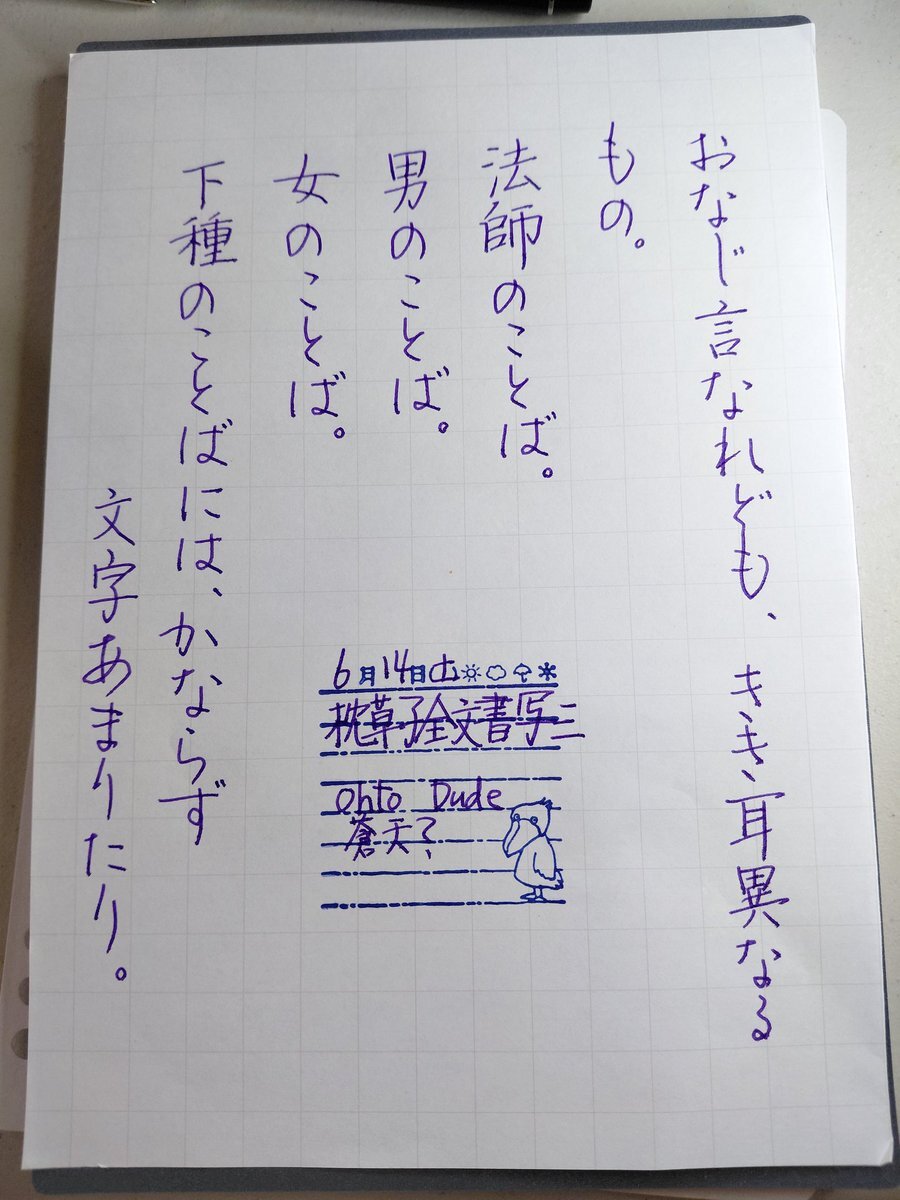 おなじ言なれども、きき耳異なる
もの。
法師のことば。
男のことば。
女のことば。
下種のことばには、かならず
文字あまりたり。
6月14日(土)
枕草子全文書写三
Ohto Dude
蒼天?